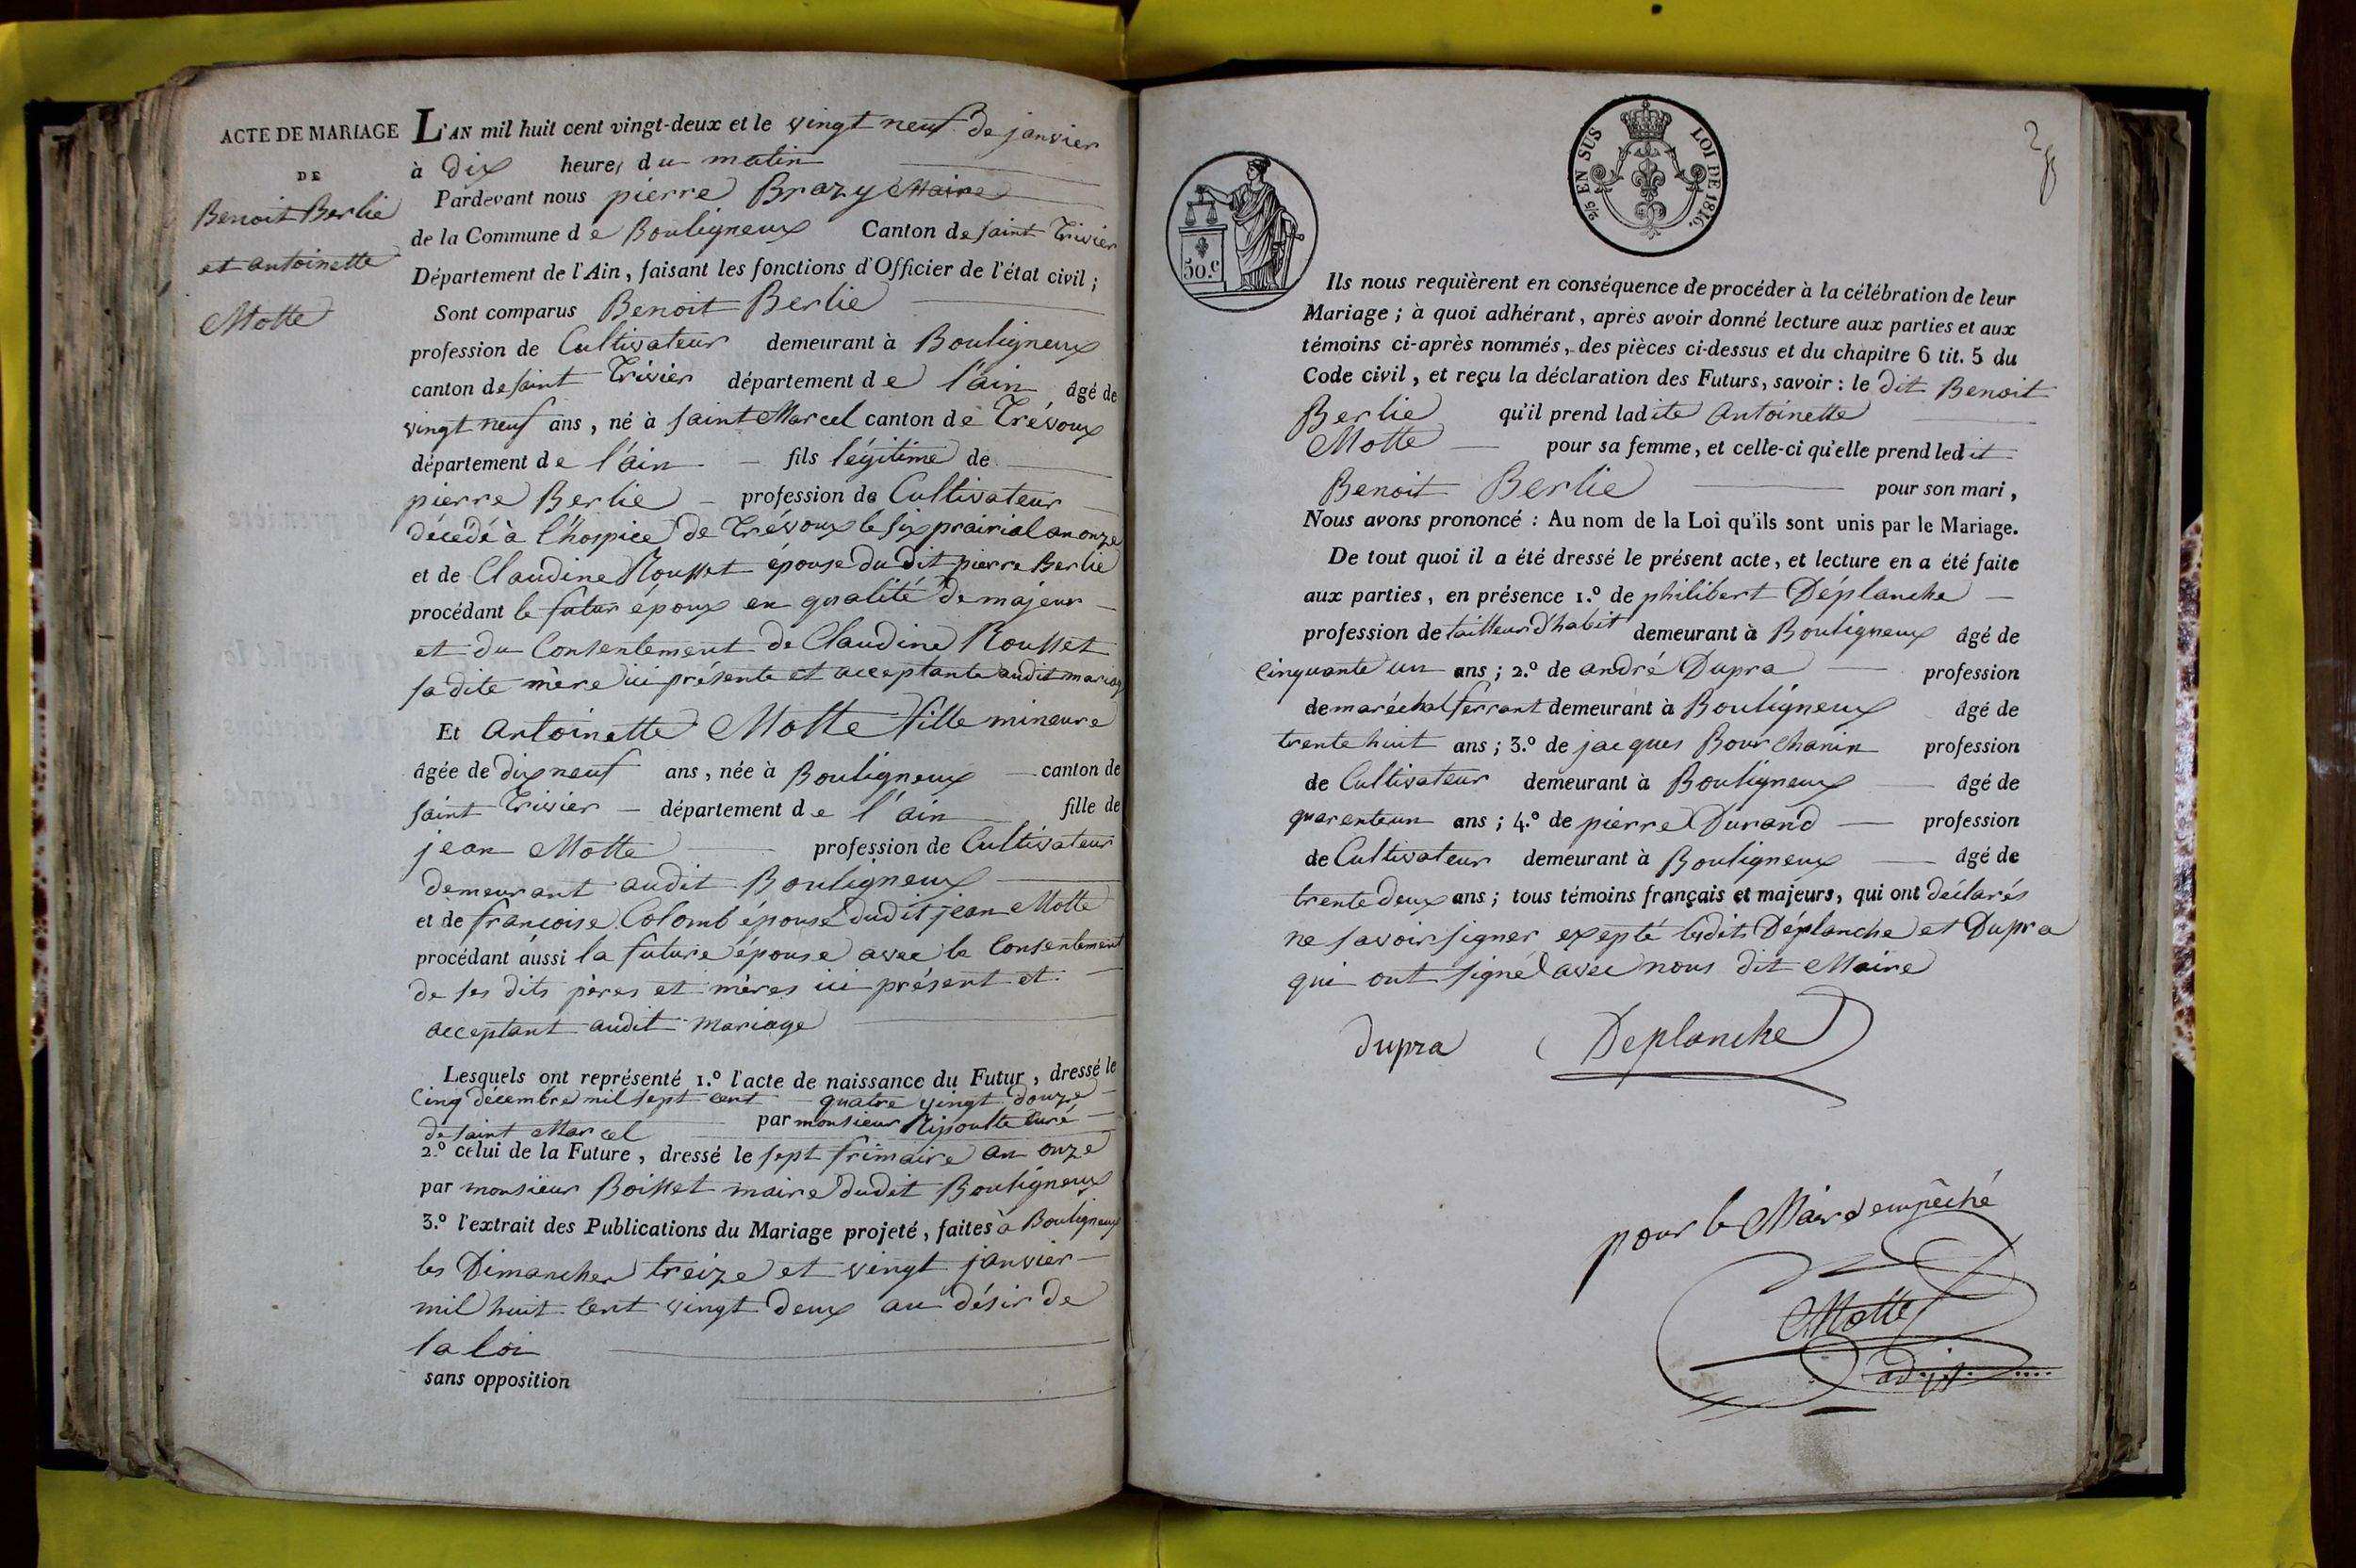 ACTE DE MARIAGE
DE
Benoit Berlie
et antoinette
Motte
L'AN mil huit cent vingt-deux et le vingt neuf de janvier
à dix heures du matin
Pardevant nous pierre Brazy Maire
de la Commune de Bouligneux Canton de saint Trivier
Département de l'Ain, faisant les fonctions d'Officier de l'état civil;
Sont comparus Benoit Berlie
profession de Cultivateur demeurant à Bouligneux
canton de saint Trivier département de l'ain âgé de
vingt neuf ans, né à saint Marcel canton de Trévoux
département de l'ain fils légitime de
pierre Berlie profession de Cultivateur
décédé à l'hospice de Trévoux le six prairial an onze
et de Claudine Rousset épouse du dit pierre Berlie
procédant le futur époux en qualité de majeur
et du Consentement de Claudine Rousset
sa dite mère ici présente et acceptante audit mariag
Et Antoinette Motte fille mineure
âgée de dix neuf ans, née à Bouligneux canton de
saint Trivier département de l'ain fille de
jean Motte profession de Cultivateur
demeurant audit Bouligneux
et de francoise Colomb épouse dudit jean Motte
procédant aussi la future épouse avec le Consentement
de ses dits pères et mères ici présent et
acceptant audit mariage
Lesquels ont représenté 1.º l'acte de naissance du Futur, dressé le
Cinq décembre mil sept cent quatre vingt douze
de saint Marcel par monsieur Ripoulte Curé
2.º celui de la Future, dressé le sept frimaire an onze
par monsieur Boisset maire dudit Bouligneux
3.º l'extrait des Publications du Mariage projeté, faites à Bouligneux
les Dimanches treize et vingt janvier
mil huit cent vingt deux au désir de
la loi
sans opposition
50.c
2/5 EN SUS LOI DE 1816.
Ils nous requièrent en conséquence de procéder à la célébration de leur
Mariage; à quoi adhérant, après avoir donné lecture aux parties et aux
témoins ci-après nommés, des pièces ci-dessus et du chapitre 6 tit. 5 du
Code civil, et reçu la déclaration des Futurs, savoir: le dit Benoit
Berlie qu'il prend ladite Antoinette
Motte pour sa femme, et celle-ci qu'elle prend ledit
Benoit Berlie pour son mari,
Nous avons prononcé: Au nom de la Loi qu'ils sont unis par le Mariage.
De tout quoi il a été dressé le présent acte, et lecture en a été faite
aux parties, en présence 1.º de philibert Déplanche
profession de tailleur d'habit demeurant à Bouligneux âgé de
Cinquante un ans; 2.º de andré Dupra profession
de maréchal ferrant demeurant à Bouligneux âgé de
trente huit ans; 3.º de jacques Bourchanin profession
de Cultivateur demeurant à Bouligneux âgé de
quarenteun ans; 4.º de pierre Durand profession
de Cultivateur demeurant à Bouligneux âgé de
trente deux ans; tous témoins français et majeurs, qui ont déclarés
ne savoir signer exepté lesdits Déplanche et Dupra
qui ont signé avec nous dit Maire
dupra Deplanche
pour le Maire empêché
Motte
adjt